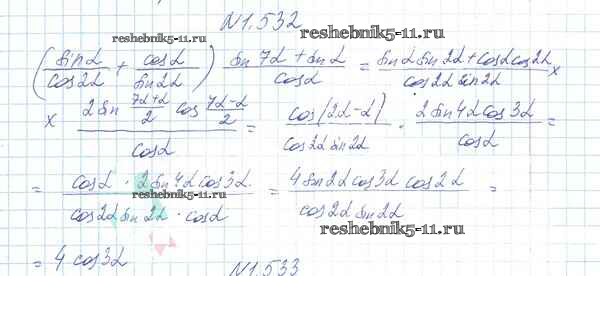 N1.532
reshebnik5-11.ru
(sinα/cos2α + cosα/sin2α) (sin7α + sinα)/cosα = (sinα sin2α + cosα cos2α)/(cos2α sin2α) ×
× (2 sin (7α+α)/2 cos (7α-α)/2)/cosα = cos(2α-α)/(cos2α sin2α) · (2 sin4α cos3α)/cosα =
= (cosα · 2 sin4α cos3α)/(cos2α sin2α · cosα) = (4 sin2α cos3α cos2α)/(cos2α sin2α) =
reshebnik5-11.ru
reshebnik5-11.ru
= 4 cos3α
N1.533